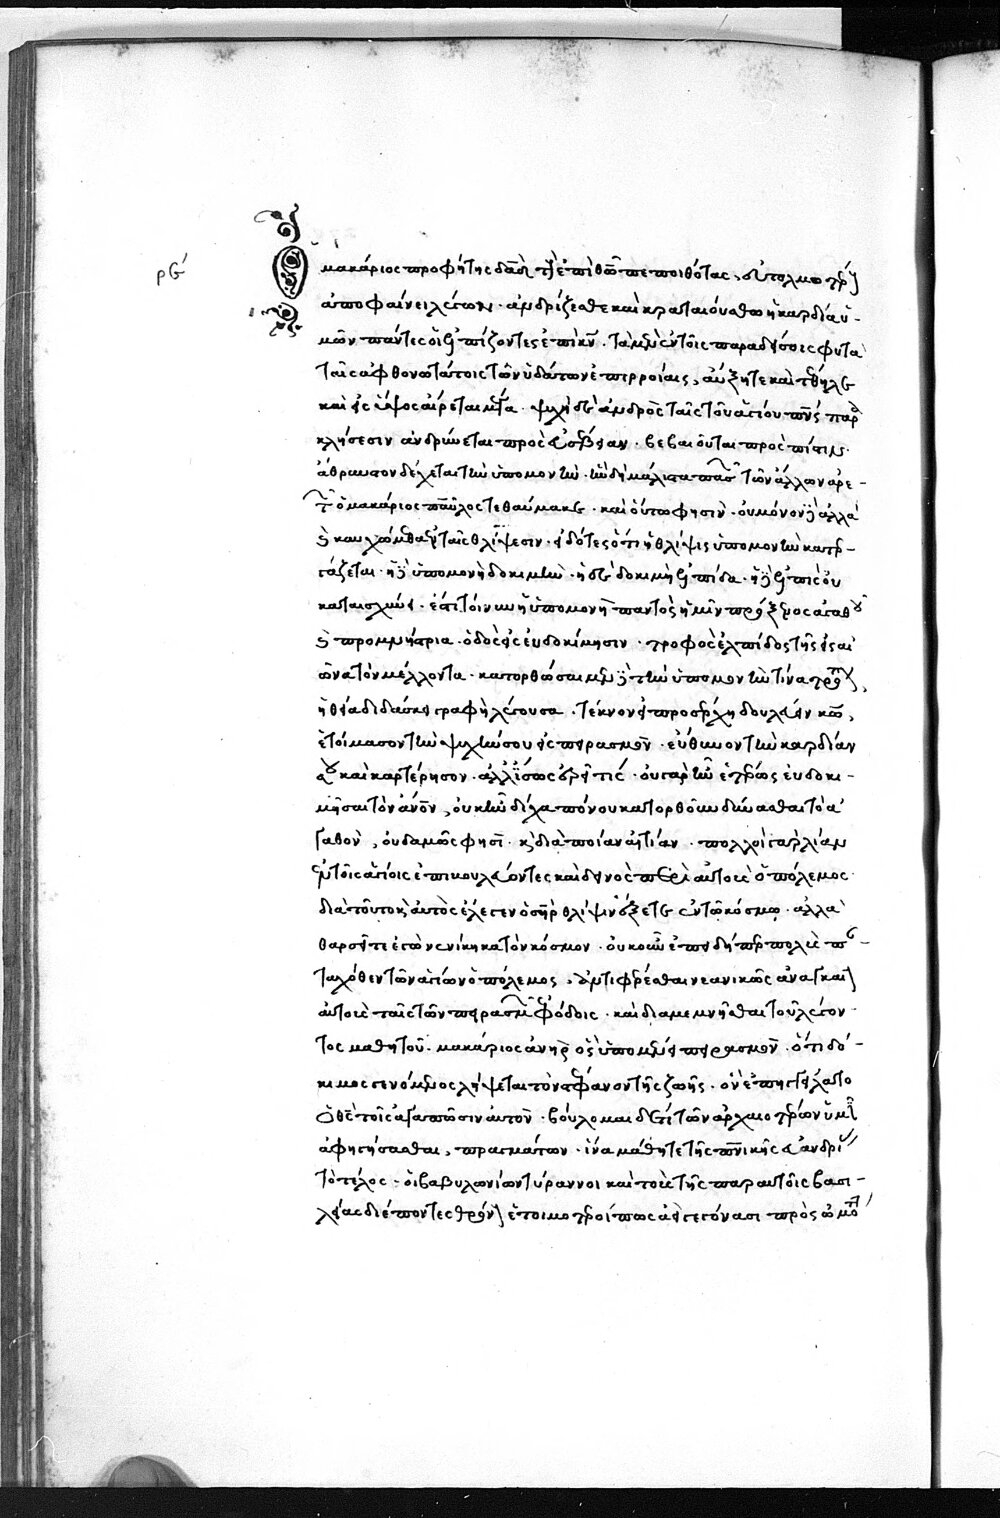 ρϛʹ
Ὁ μακάριος προφήτης δαδ τοὺς ἐπὶ θῶ πεποιθότας, εὐτολμοτέρους
ἀποφαίνει λέγων· ἀνδρίζεσθε καὶ κραταιούσθω ἡ καρδία ὑ-
μῶν πάντες οἱ ἐλπίζοντες ἐπὶ κν· τὰ μὲν ἐν τοῖς παραδείσοις φυτὰ
ταῖς ἀφθονωτάταις τῶν ὑδάτων ἐπιρροίαις, αὔξηται καὶ τέθηλε
καὶ εἰς ὕψος αἴρεται μέγα· ψυχὴ δὲ ἀνδρὸς ταῖς τοῦ ἁγίου πνς παρα
κλήσεσιν ἀνδρίζεται πρὸς εὐσέβειαν· βεβαιοῦται πρὸς πίστιν·
ἄθραυστον δέχεται τὴν ὑπομονὴν· ἣν δὴ μάλιστα πασῶν τῶν ἄλλων ἀρε-
τῶν ὁ μακάριος παῦλος τεθαύμακε· καὶ οὕτω φησὶν· οὐ μόνον δὲ ἀλλὰ
καὶ καυχώμεθα ἐν ταῖς θλίψεσιν· εἰδότες ὅτι ἡ θλίψις ὑπομονὴν κατερ-
γάζεται· ἡ δὲ ὑπομονὴ δοκιμὴν· ἡ δὲ δοκιμὴ ἐλπίδα· ἡ δὲ ἐλπὶς οὐ
καταισχύνει· ἔστι τοίνυν ἡ ὑπομονὴ παντὸς ἡμῖν πρόξενος ἀγαθοῦ
καὶ προμνήστρια· ὁδὸς εἰς εὐδοκίμησιν· τροφὸς ἐλπίδος τῆς εἰς αἰ
ῶνα τὸν μέλλοντα· κατορθῶσαι μὲν δὲ τὴν ὑπομονὴν τίνα τρόπον,
ἡ θεία διδάσκει γραφὴ λέγουσα· τέκνον εἰ προσέρχῃ δουλεύειν κῶ,
ἑτοίμασον τὴν ψυχήν σου εἰς πειρασμὸν· εὔθυνον τὴν καρδίαν
σου καὶ καρτέρησον· ἀλλ' ἴσως ἐρεῖ τίς· οὐ γὰρ ἦν ἑτέρως εὐδοκι-
μῆσαι τὸν ἀνον, οὐκ ἦν δίχα πόνου κατορθοῦν δύνασθαι τὸ ἀ
γαθὸν, οὐδαμῶς φησι· καὶ διὰ ποίαν αἰτίαν· πολλοὶ γὰρ λίαν
ἐν τοῖς ἁγίοις ἐπιβουλεύοντες καὶ δεινὸς περὶ αὐτοὺς ὁ πόλεμος·
διὰ τοῦτο καὶ αὐτὸς ἔλεγεν ὁ σηρ θλίψιν ἕξετε ἐν τῶ κόσμω· ἀλλὰ
θαρσεῖτε ἐγὼ νενίκηκα τὸν κόσμον· οὐκοῦν ἐπειδήπερ πολὺς πα-
ταχόθεν τῶν ἁγίων ὁ πόλεμος, ἀντιφέρεσθαι νεανικῶς ἀναγκαῖον
αὐτοὺς ταῖς τῶν πειρασμῶν ἐφόδοις· καὶ διαμεμνῆσθαι τοῦ λέγον
τος μαθητοῦ· μακάριος ἀνὴρ ὃς ὑπομένει πειρασμὸν· ὅτι δό-
κιμος γενόμενος λήψεται τὸν στέφανον τῆς ζωῆς· ὃν ἐπηγγείλατο
ὁ θς τοῖς ἀγαπῶσιν αὐτὸν· βούλομαι δέ τι τῶν ἀρχαιοτέρων ὑμῖν
ἀφηγήσασθαι, πραγμάτων· ἵνα μάθητε τῆς πνικῆς εὐανδρίας
τὸ τέλος· οἱ βαβυλωνίων τύραννοι καὶ τοὺς τῆς παρ' αὐτοῖς βασι-
λείας διέποντες θρόνους ἑτοιμότεροί πως ἀεὶ γεγόνασι πρὸς ὠμότητα